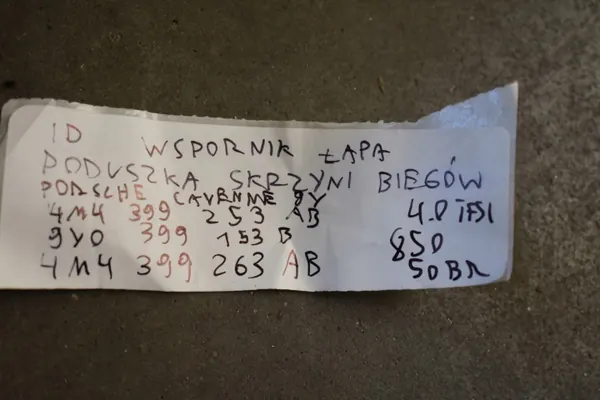 ID WSPORNIK ŁAPA
PODUSZKA SKRZYNI BIEGÓW
PORSCHE CAYENNE 9Y
4M4 399 253 AB 4.0 TFSI
9Y0 399 153 B 850
4M4 399 263 AB 50BR